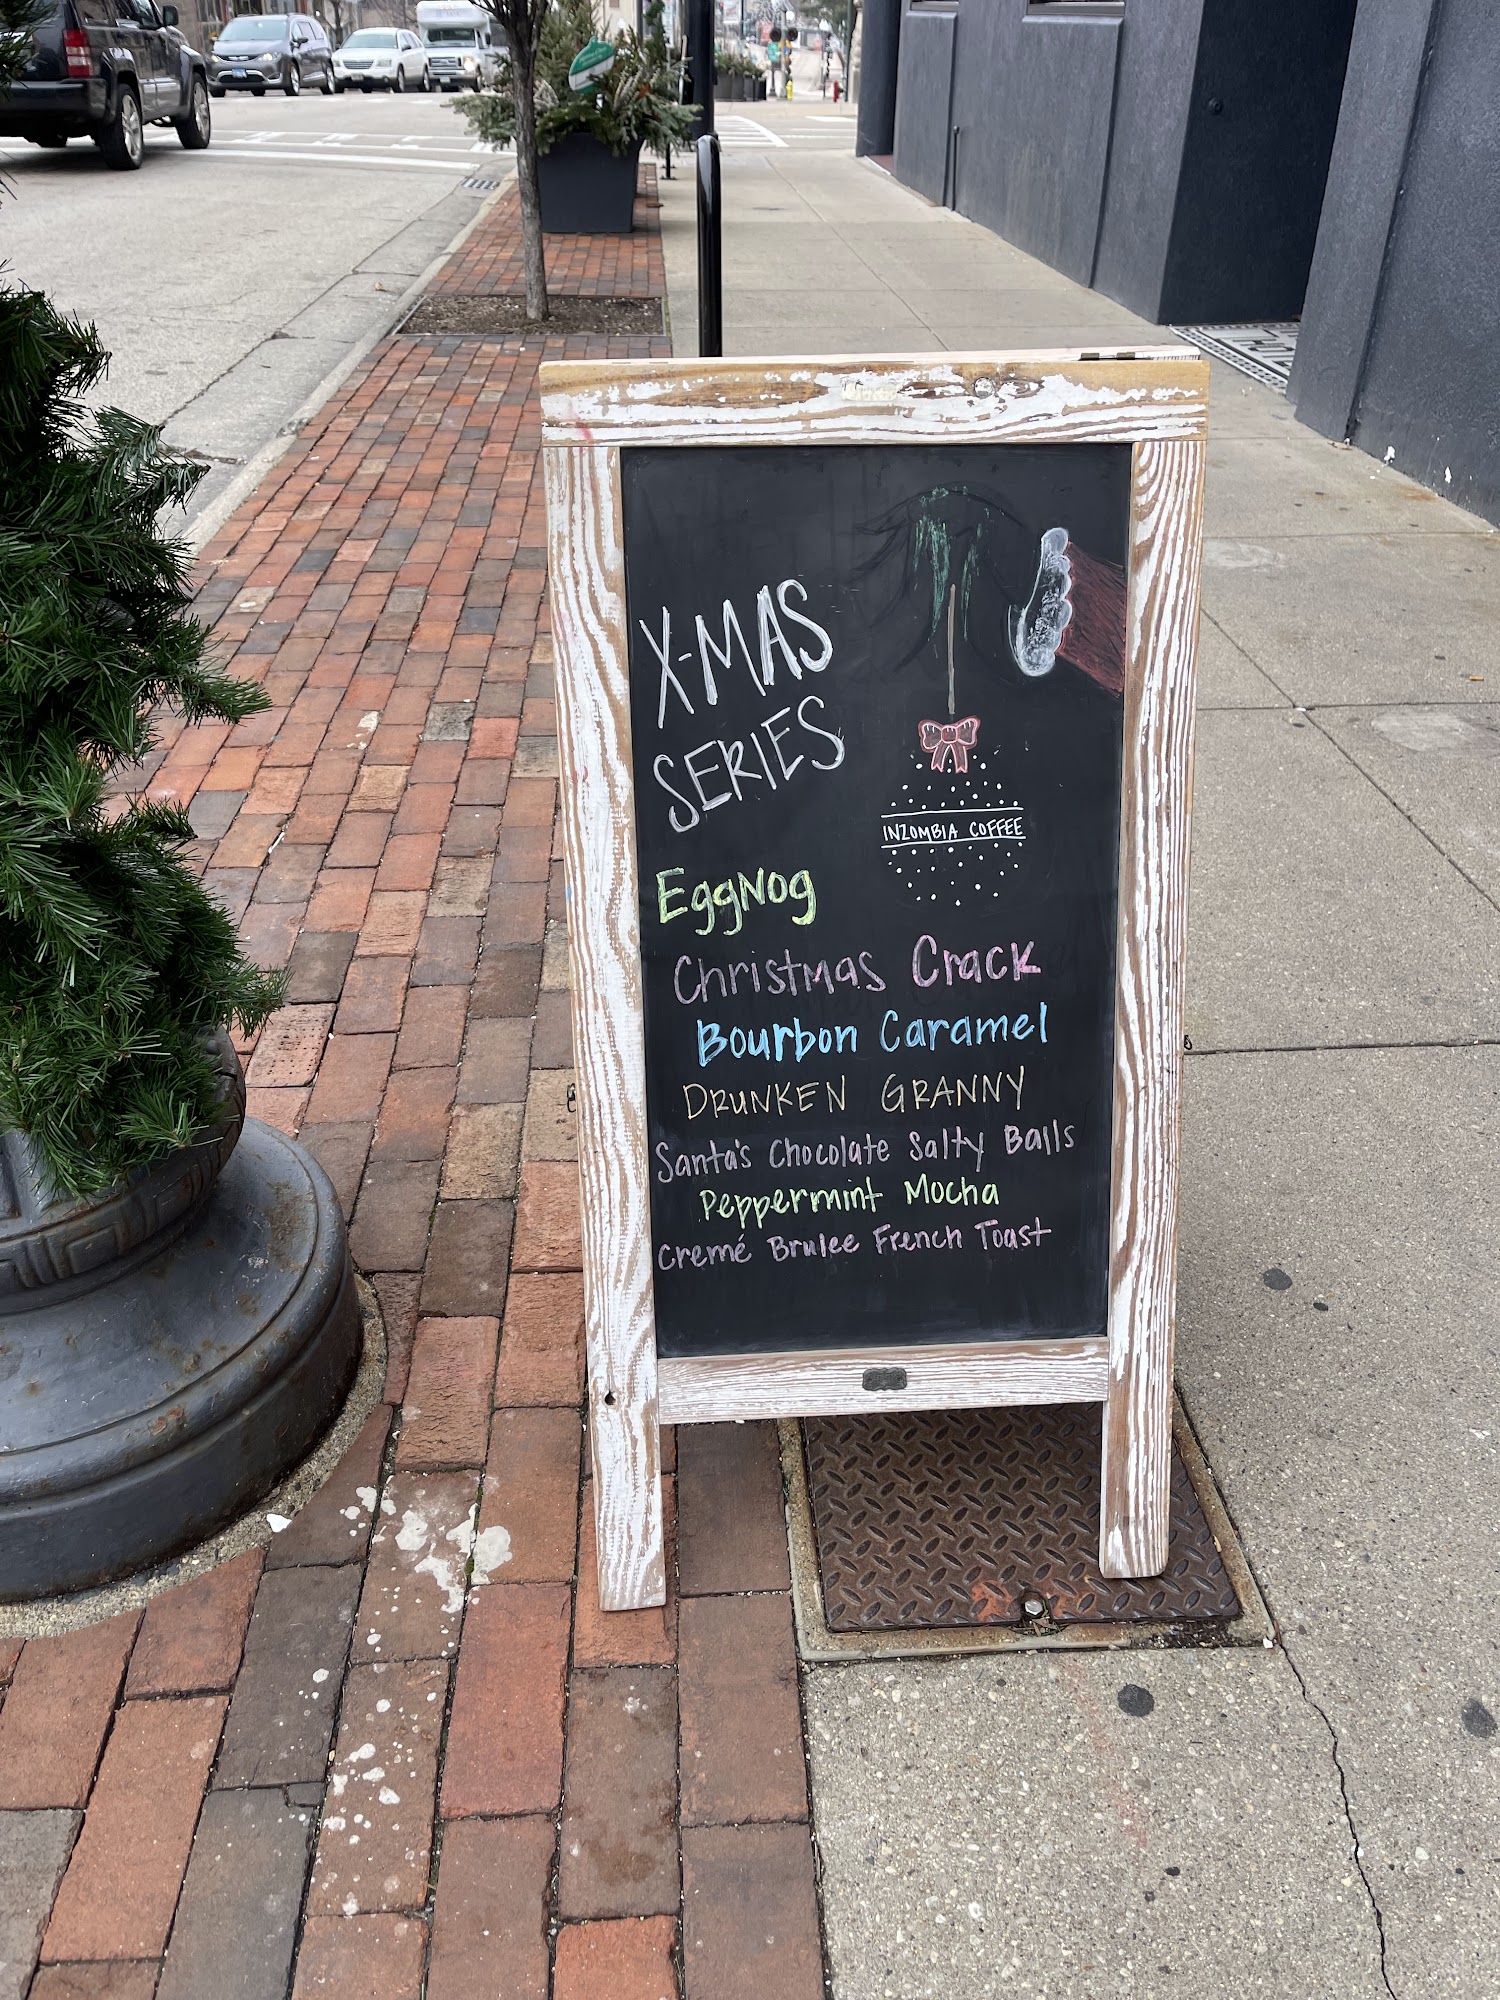 X-MAS
SERIES
INZOMBIA COFFEE
EggNog
Christmas Crack
Bourbon Caramel
DRUNKEN GRANNY
Santa's Chocolate Salty Balls
Peppermint Mocha
Cremé Brulee French Toast